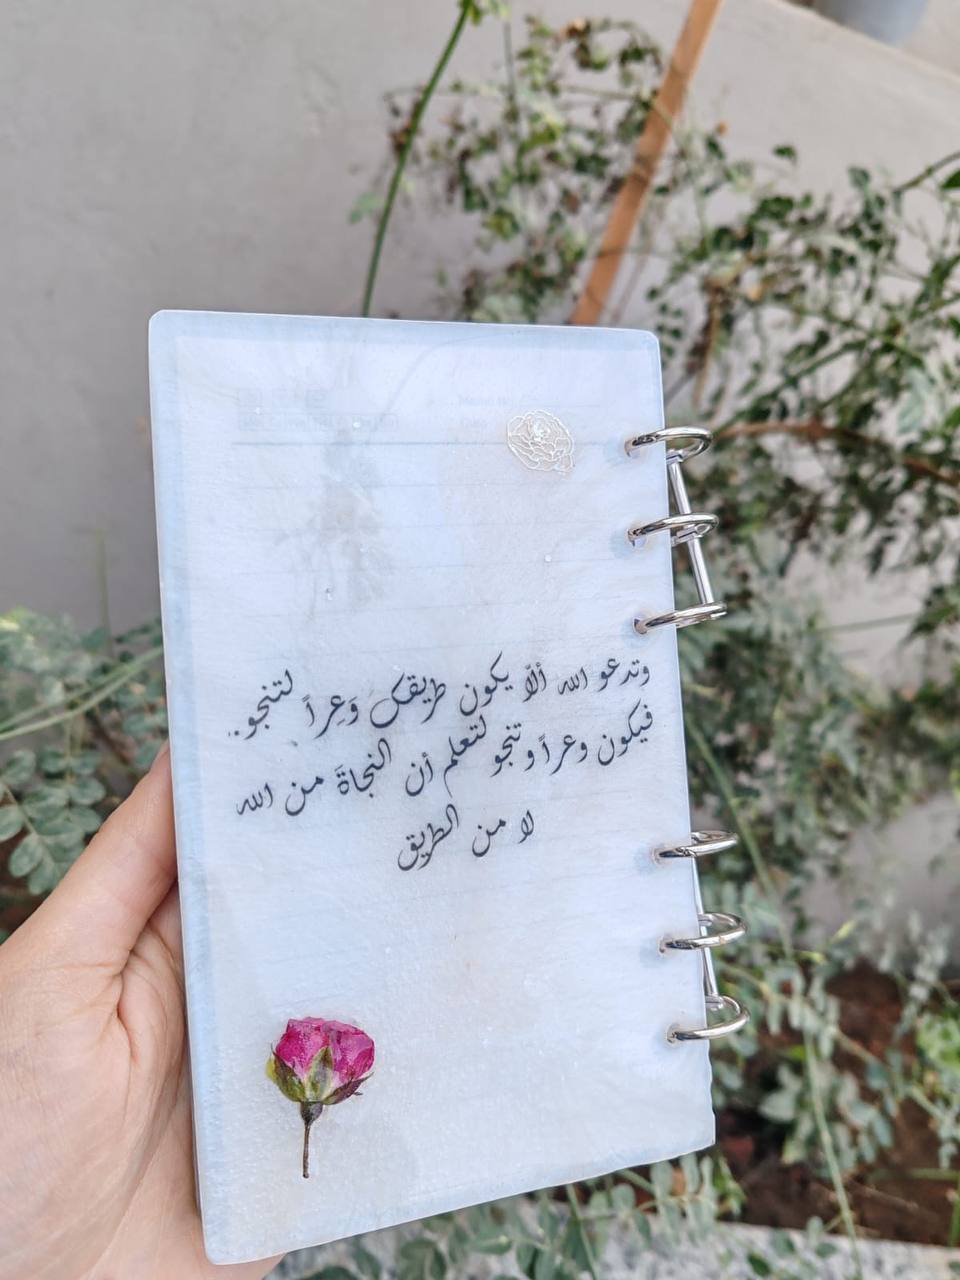 وتدعو الله ألاّ يكون طريقك وَعِراً لتنجو..
فيكون وعراً وتنجو لتعلم أن النجاةَ من الله
لا من الطريق